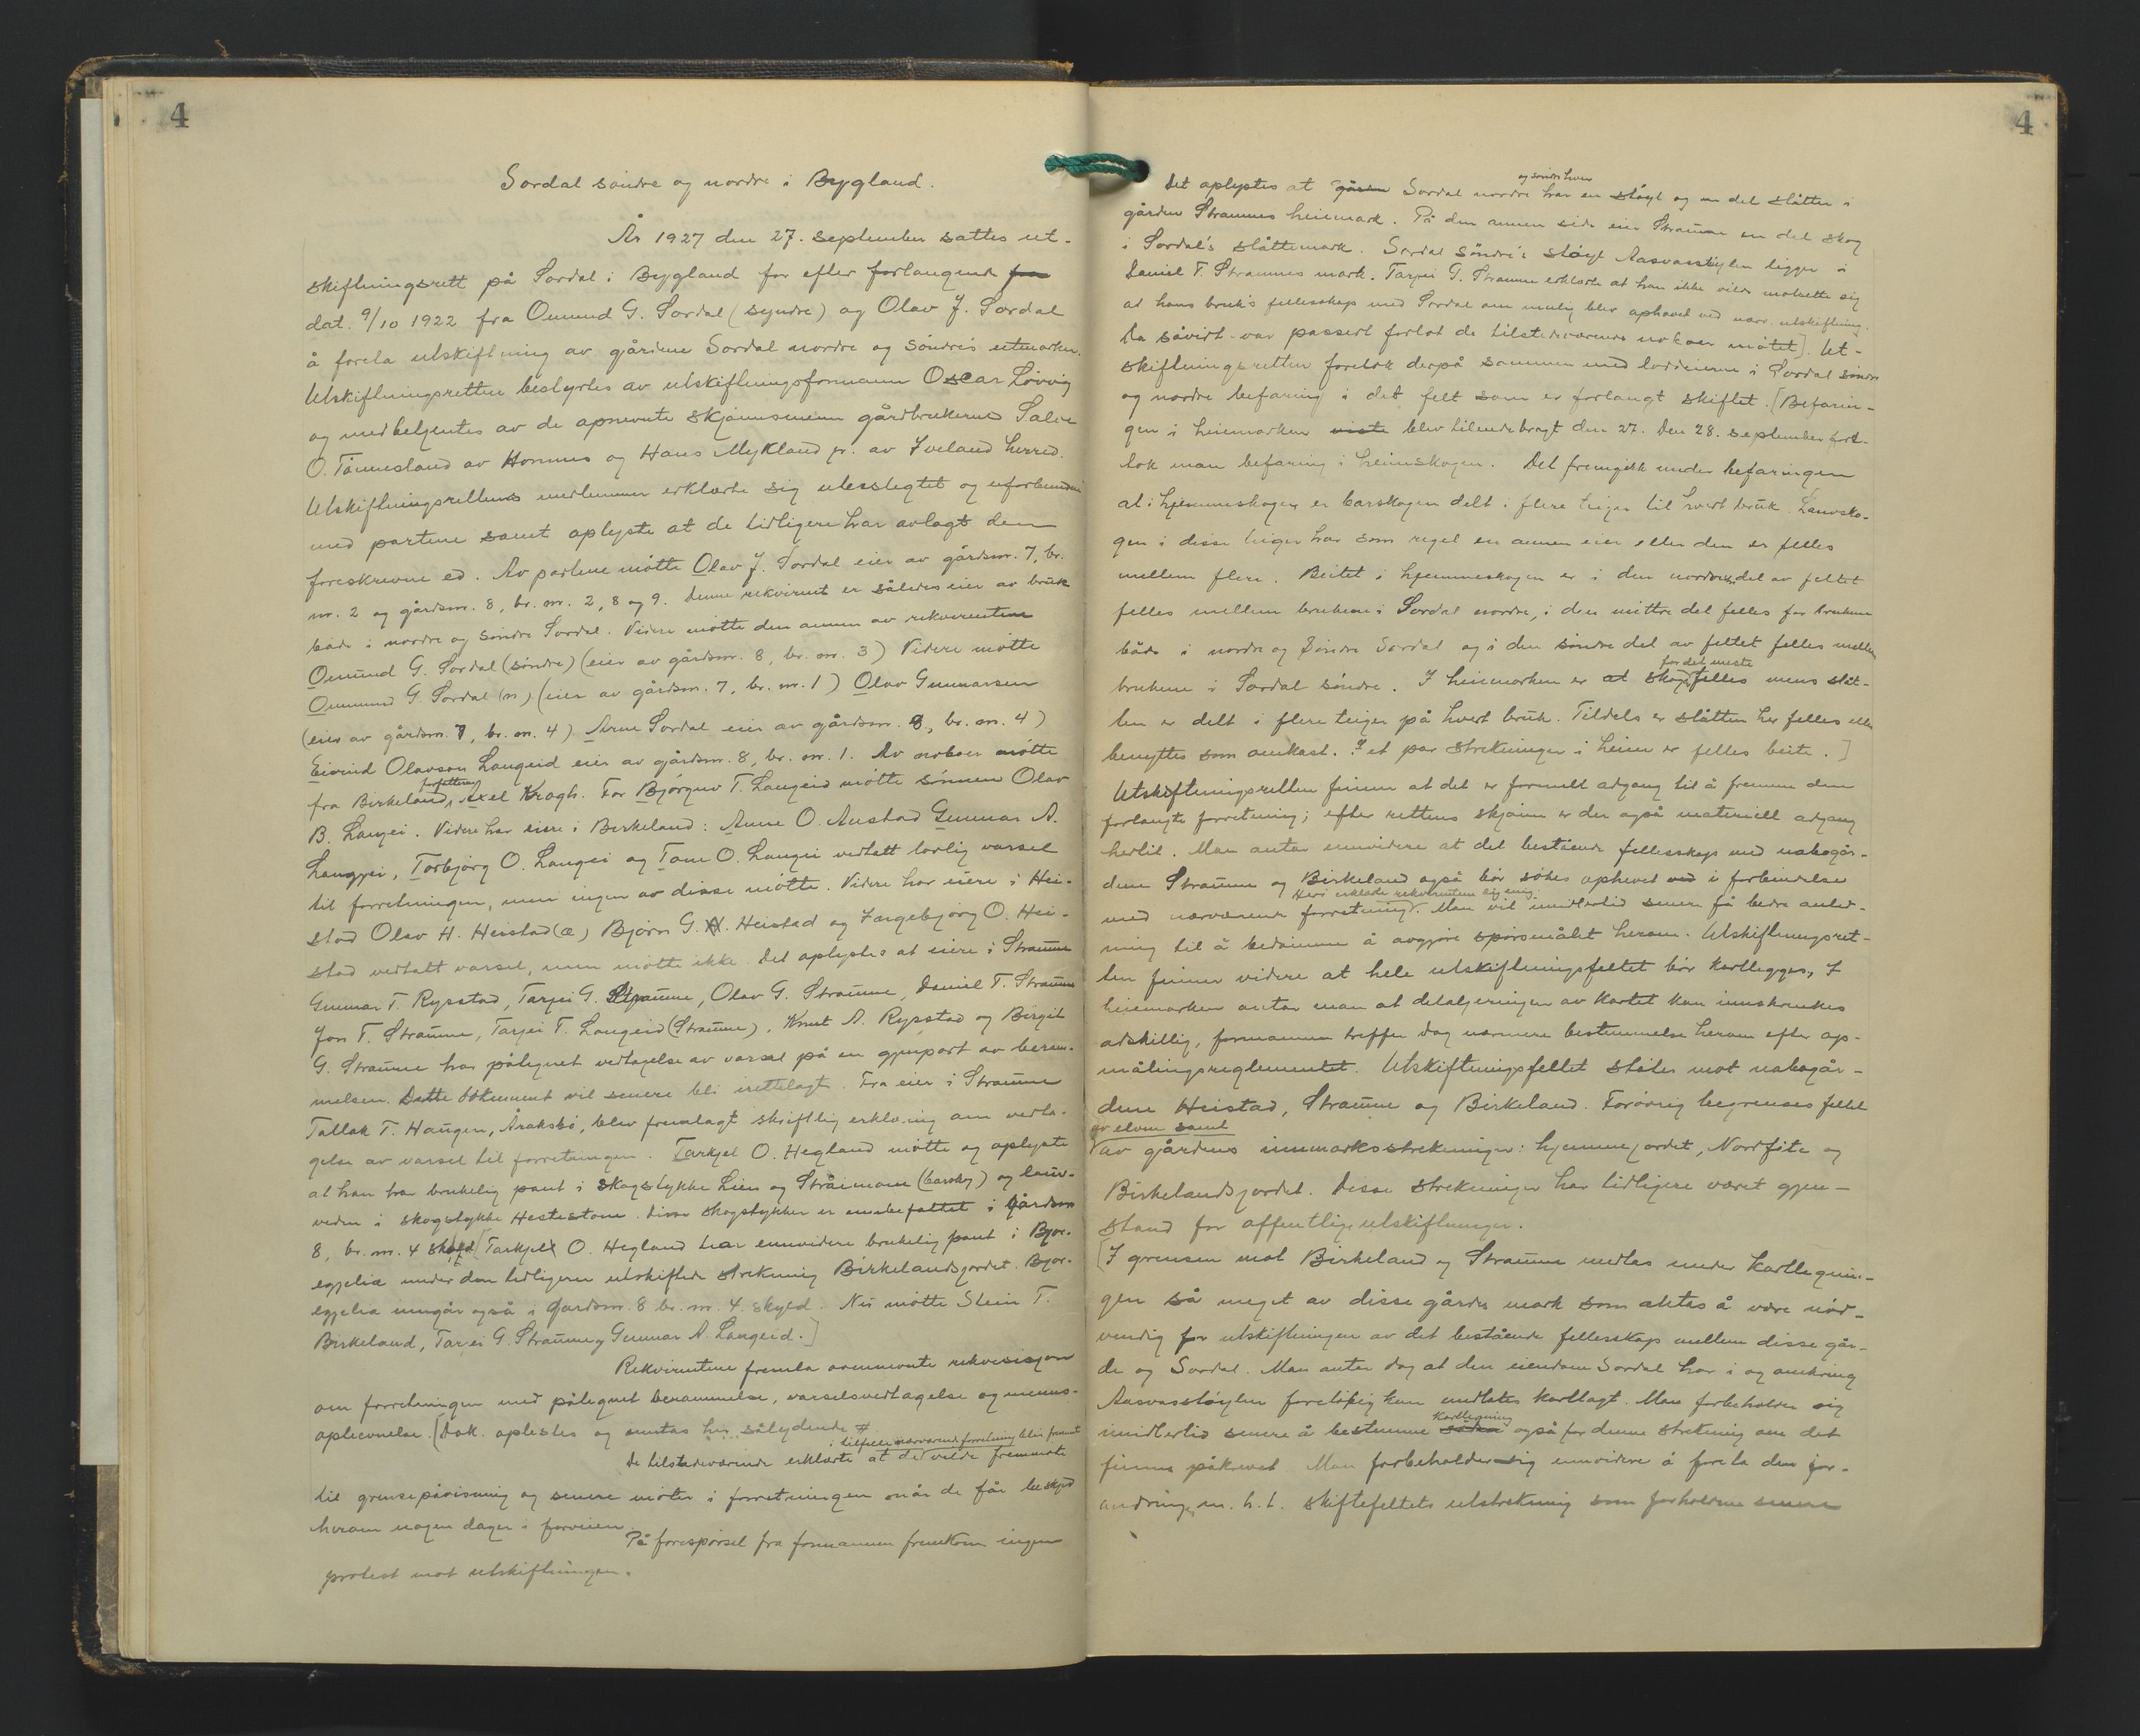 4
Sordal söndre og nordre i Bygland.
År 1927 den 27. september sattes ut-
skiftningsrett på Sordal i Bygland for efter forlangende fra
dat. 9/10 1922 fra Omund G. Sordal (syndre) og Olav J. Sordal
å foreta utskiftning av gårdene Sordal nordre og söndre's utmarker.
Utskiftningsretten bestyrtes av utskiftningsformann Oscar Lövvig
og medbetjentes av de opnevnte skjönnsmenn gårdbrukerne Salve
O. Tånnesland av Hornnes og Hans Mykland jr. av Iveland herred.
Utskiftningsrettens medlemmer erklærte sig ubeslegtet og uforbundne
med partene samt oplyste at de tidligere har avlagt den
foreskrevne ed. Av partene mötte Olav J. Sordal eier av gårdsnr. 7, br.
nr. 2 og gårdsnr. 8, br. nr. 2, 8 og 9. Denne rekvirent er således eier av bruk
både i nordre og söndre Sordal. Videre mötte den annen av rekvirentene
Omund G. Sordal (söndre) (eier av gårdsnr. 8, br. nr. 3) Videre mötte
Ommund G. Sordal (n) (eier av gårdsnr. 7, br. nr. 1) Olav Gunnarsen
(eier av gårdsnr. 7, br. nr. 4) Arne Sordal eier av gårdsnr. 8, br. nr. 4)
Eivind Olavson Langeid eier av gårdsnr. 8, br. nr. 1. Av naboer mötte
fra Birkeland, Axel Kragh. For Björguv T. Langeid mötte sönnen Olav
B. Langei. Videre har eiere i Birkeland: Anne O. Austad Gunnar A.
Langjei, Torbjörg O. Langei og Tone O. Langei vedtatt lovlig varsel
til forretningen, men ingen av disse mötte. Videre har eiere i Hei-
stad Olav H. Heistad (æ) Björn G. H. Heistad og Ingebjörg O. Hei-
stad vedtatt varsel, men mötte ikke. Det oplystes at eiere i Straume
Gunnar T. Rysstad, Tarjei G. Straume, Olav G. Straume, Daniel T. Straume
Jon T. Straume, Tarjei T. Langeid (Straume), Knut A. Rysstad og Birgit
G. Straume har påtegnet vedtagelse av varsel på en gjenpart av beram-
melsen. Dette dokument vil senere bli irettelagt. Fra eier i Straume
Tallak T. Haugen, Åraksbö, blev fremlagt skriftlig erklæring om vedta-
gelse av varsel til forretningen. Tarkjel O. Hegland mötte og oplyste
at han har brukelig pant i skogstykke Lien og Stråimoen (barskog) og lauv-
veden i skogstykke Hestestone. Disse skogstykker er innbefattet i gårdsnr.
8, br. nr. 4 skyld [Tarkjell O. Hegland har ennvidere brukelig pant i Bjor-
egjelia under den tidligere utskiftede strekning Birkelandsjordet. Bjor-
egjelia inngår også i gårdsnr. 8 br. nr. 4. skyld. Nu mötte Stein T.
Birkeland, Tarjei G. Straume og Gunnar A. Langeid.]
Rekvirentene fremla ovennevnte rekvisisjon
om forretningen med påtegnet berammelse, varselsvedtagelse og menns-
oplevnelse. [Dok. oplestes og inntas her sålydende #
i tilfelle nærværende forretning blir fremmet
De tilstedeværende erklærte at de vilde fremmöte
til grensepåvisning og senere möter i forretningen når de får beskjed
herom nogen dager i forveien.
På forespörsel fra formannen fremkom ingen
protest mot utskiftningen.
4
og söndre hver
Det oplystes at gården Sordal nordre har en stöyl og en del slåtter i
gården Straumes heiemark. På den annen side eier Straume en del skog
i Sordal's slåttemark. Sordal söndre's stöyl Aasvasstöylen ligger i
Daniel T. Straumes mark. Tarjei G. Straume erklærte at han ikke vilde motsette sig
at hans bruk's fellesskap med Sordal om mulig blev ophevet ved nærv. utskiftning.
Da såvidt var passert forlot de tilstedeværende naboer mötet]. Ut-
skiftningsretten foretok derpå sammen med loddeierne i Sordal söndre
og nordre befaring i det felt som er forlangt skiftet. [Befarin-
gen i heiemarken viste blev tilendebragt den 27. Den 28. september fore-
tok man befaring i heimskogen. Det fremgikk under befaringen
at i hjemmeskogen er barskogen delt i flere teiger til hvert bruk. Lauvsko-
gen i disse teiger har som regel en annen eier eller den er felles
mellem flere. Beitet i hjemmeskogen er i den nordre del av feltet
felles mellem brukene i Sordal nordre, i den mittre del felles for brukene
både i nordre og söndre Sordal og i den söndre del av feltet felles mellem
for det meste
brukene i Sordal söndre. I heiemarken er at skog felles mens slåt-
ten er delt i flere teiger på hvert bruk. Tildels er slåtten her felles eller
benyttes som omkast. I et par strekninger i heien er felles beite.]
Utskiftningsretten finner at det er formell adgang til å fremme den
forlangte forretning; efter rettens skjönn er der også materiell adgang
hertil. Man antar ennvidere at det bestående fellesskap med nabogår-
dene Straume og Birkeland også bör sökes ophevet ved i forbindelse
Heri erklærte rekvirentene sig enig.
med nærværende forretning. Man vil imidlertid senere få bedre anled-
ning til å bedömme å avgjöre spörsmålet herom. Utskiftningsret-
ten finner videre at hele utskiftningsfeltet bör kartlegges. I
heiemarken antar man at detaljeringen av kartet kan innskrenkes
adskillig, formannen treffer dog nærmere bestemmelse herom efter op-
målingsreglementet. Utskiftningsfeltet stöter mot nabogår-
dene Heistad, Straume og Birkeland. Forövrig begrenses feltet
av elven samt
av gårdens innmarksstrekninger: hjemmejordet, Nordfite og
Birkelandsjordet. Disse strekninger har tidligere været gjen-
stand for offentlige utskiftninger.
[I grensen mot Birkeland og Straume medtas under kartlegnin-
gen så meget av disse gårdes mark som aktes å være nöd-
vendig for utskiftningen av det bestående fellesskap mellem disse går-
de og Sordal. Man antar dog at den eiendom Sordal har i og omkring
Aasvasstöylen forelöbig kan undlates kartlagt. Man forbeholder sig
kartlegning
imidlertid senere å bestemme sådan også for denne strekning om det
finnes påkrevet. Man forbeholder sig ennvidere å foreta den for-
andring m. h. t. skiftefeltets utstrekning som forholdene senere